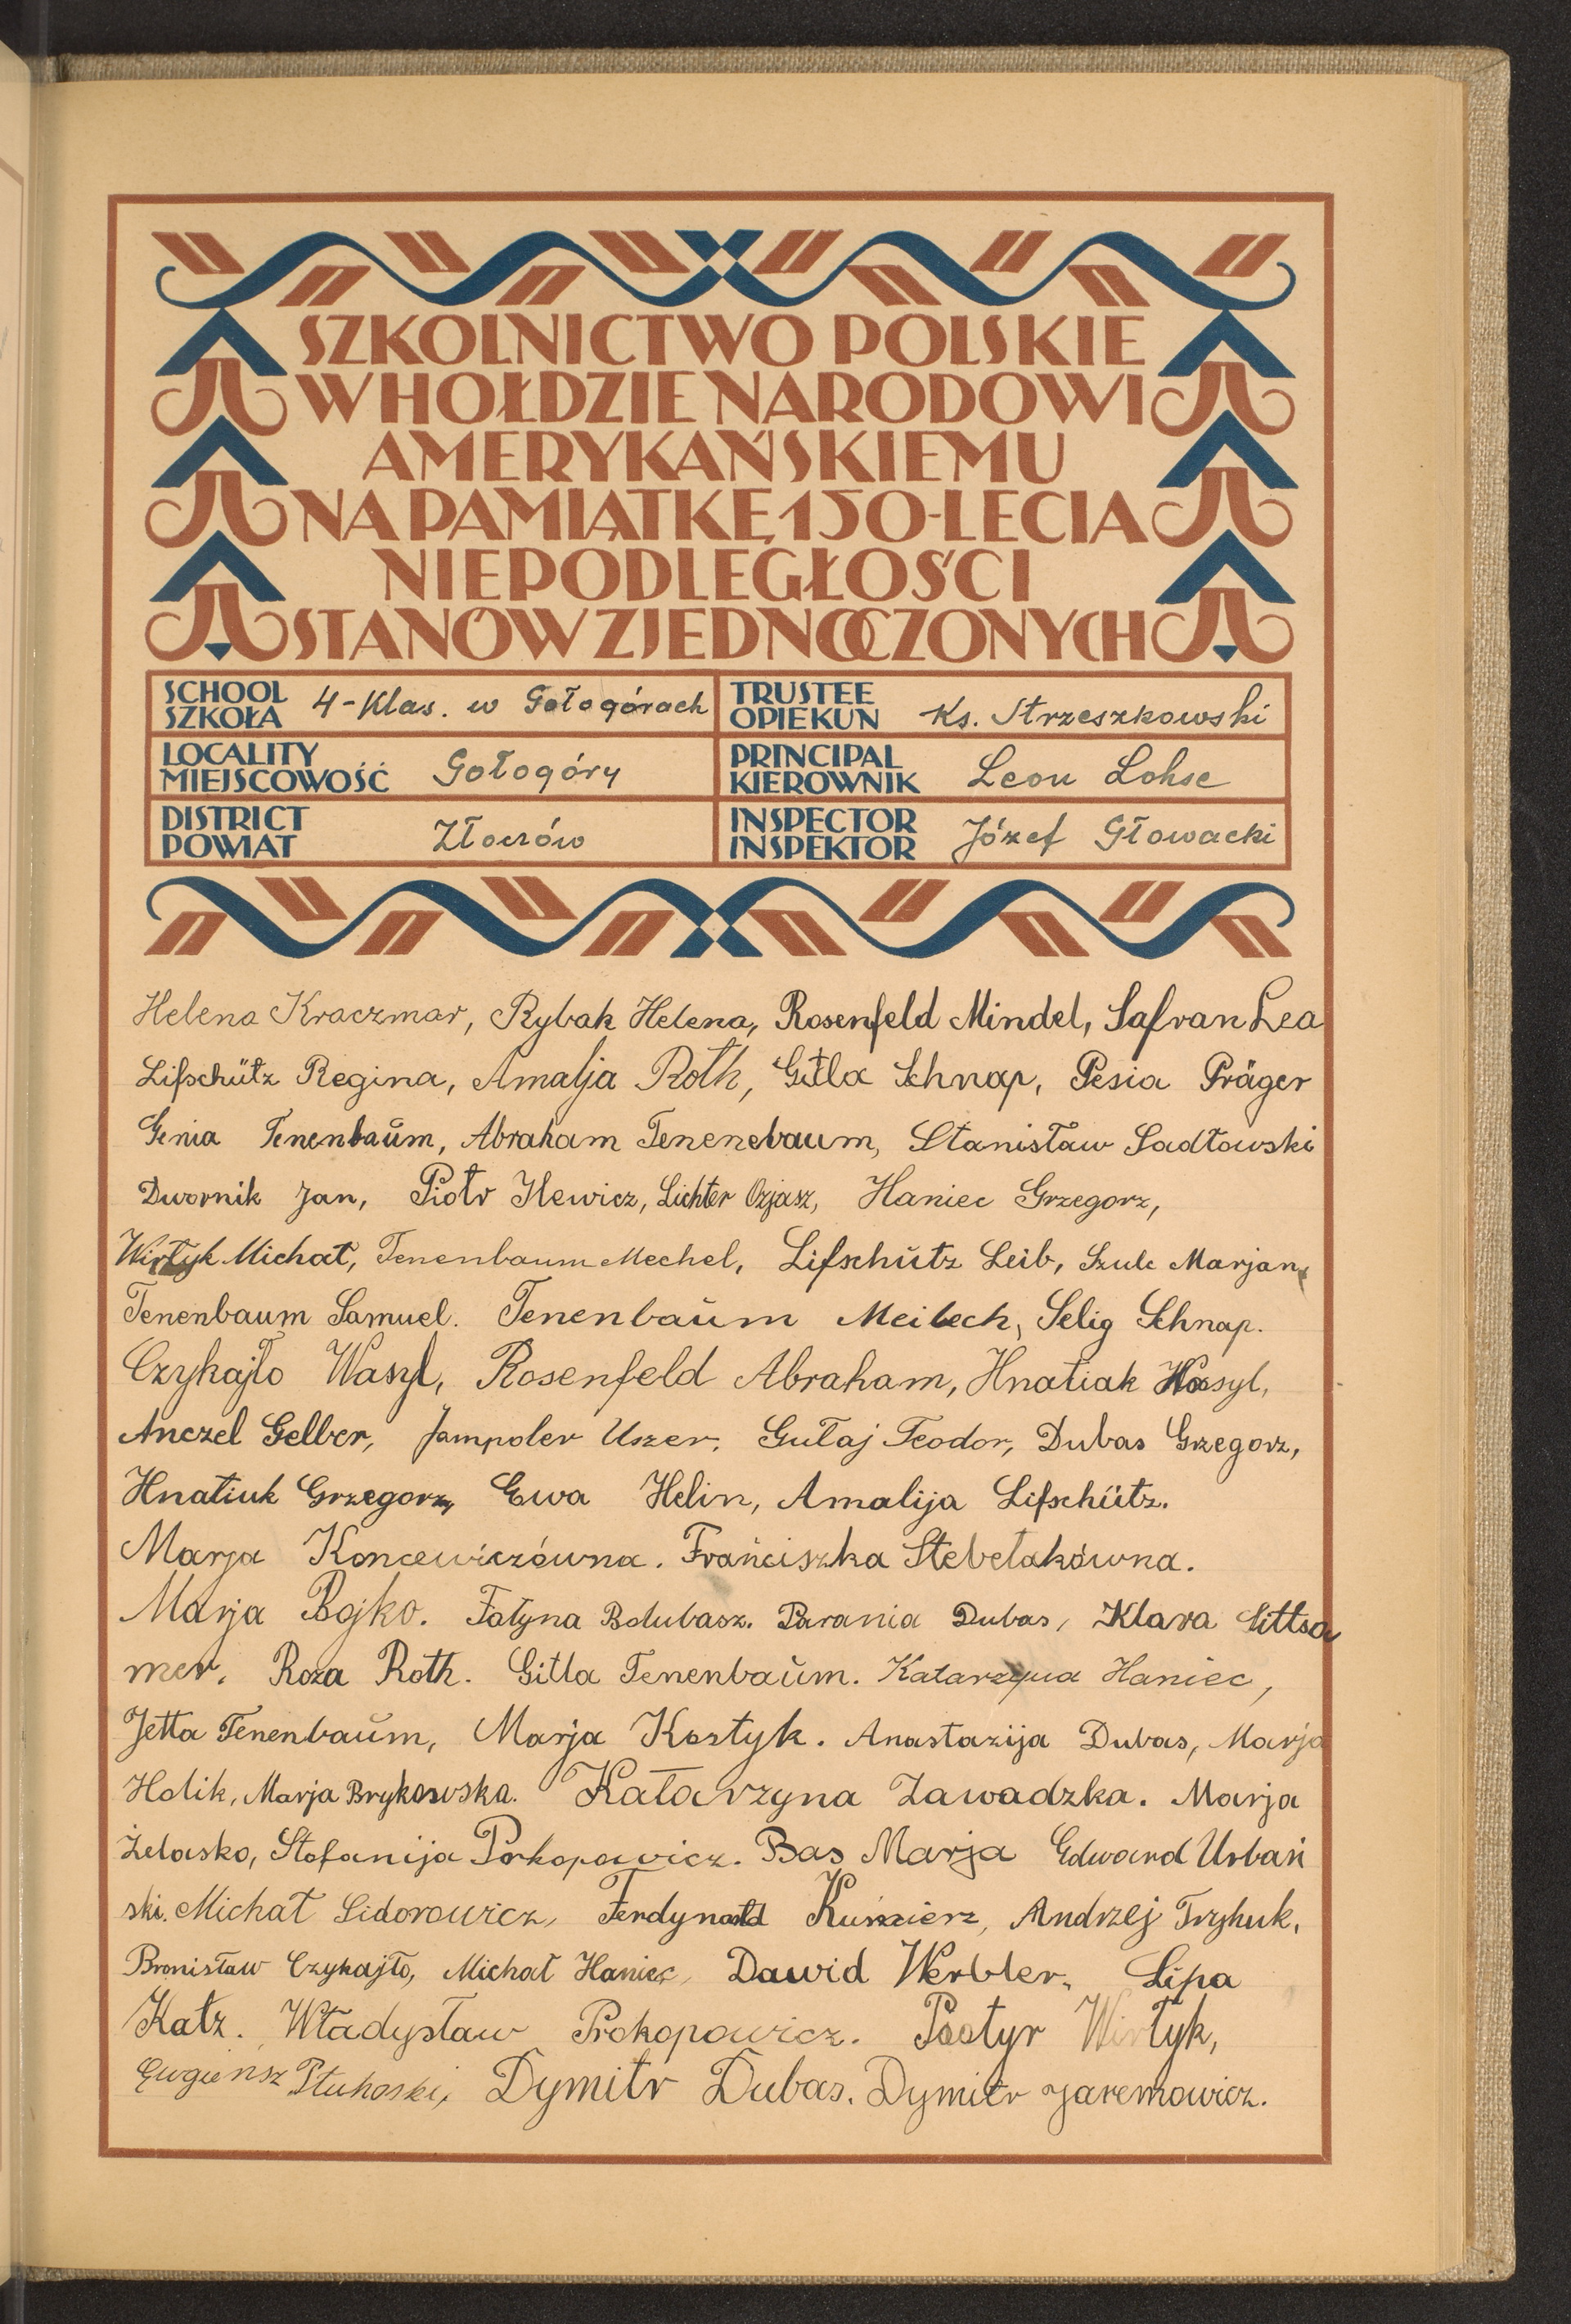 SZKOLNICTWO POLSKIE
W HOŁDZIE NARODOWI
AMERYKAŃSKIEMU
NA PAMIĄTKĘ 150-LECIA
NIEPODLEGŁOŚCI
STANÓW ZJEDNOCZONYCH
SCHOOL
SZKOŁA
4-Klas. w Gołogórach
TRUSTEE
OPIEKUN
Ks. Strzeszkowski
LOCALITY
MIEJSCOWOŚĆ
Gołogóry
PRINCIPAL
KIEROWNIK
Leon Lohse
DISTRICT
POWIAT
Złoczów
INSPECTOR
INSPEKTOR
Józef Głowacki
Helena Kraczmar, Rybak Helena, Rosenfeld Mindel, Safran Lea
Lifschütz Regina, Amalja Roth, Gitla Schnap, Pesia Präger
Genia Tenenbaŭm, Abraham Tenenebaum, Stanisław Sadłowski
Dwornik Jan, Piotr Ilewicz, Lichter Ozjasz, Haniec Grzegorz,
Wirtyk Michał, Tenenbaum Mechel, Lifschütz Leib, Szulc Marjan,
Tenenbaum Samuel. Tenenbaŭm Meilech, Selig Schnap.
Czykajło Wasyl, Rosenfeld Abraham, Hnatiak Wasyl,
Anczel Gelber, Jampoler Uszer, Gułaj Teodor, Dubas Grzegorz,
Hnatiuk Grzegorz, Ewa Helin, Amalija Lifschütz.
Marja Koncewiczówna. Frańciszka Stebelakówna.
Marja Bojko. Fatyna Bdubasz. Parania Dubas, Klara Sittsa
mer, Roza Roth. Gitla Tenenbaŭm. Katarzyna Haniec,
Jetta Tenenbaŭm, Marja Kostyk. Anastazija Dubas, Marja
Holik, Marja Brykowska. Katarzyna Zawadzka. Marja
Żelasko, Stofanija Porkopowicz. Bas Marja Edward Urbań
ski. Michał Sidorowicz, Ferdynand Kuśnierz, Andrzej Tryhuk,
Bronisław Czykajło, Michał Haniec, Dawid Werbler, Lipa
Katz. Władysław Prokopowicz. Postyr Wirtyk,
Eugiensz Ptuhoski, Dymitr Dubas. Dymitr Jaremowicz.